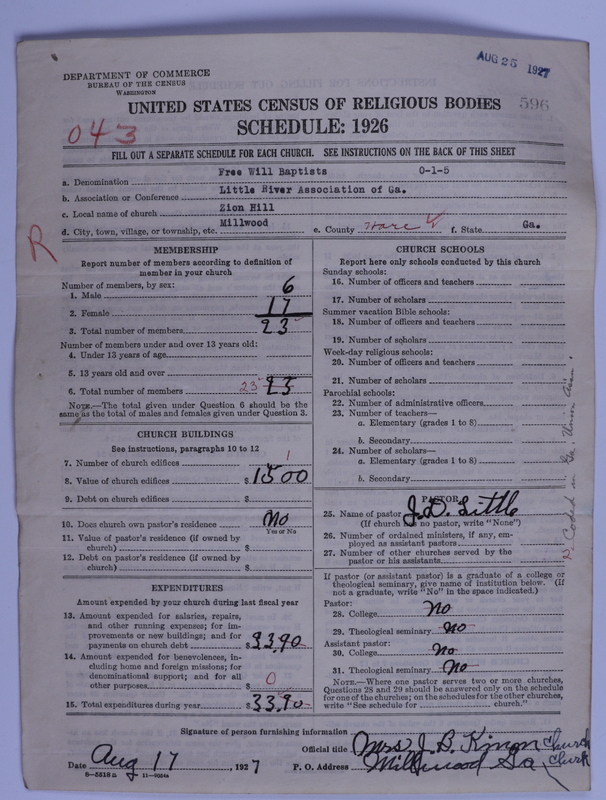 AUG 25 1927
DEPARTMENT OF COMMERCE
BUREAU OF THE CENSUS
WASHINGTON
UNITED STATES CENSUS OF RELIGIOUS BODIES
596
043
SCHEDULE: 1926
FILL OUT A SEPARATE SCHEDULE FOR EACH CHURCH. SEE INSTRUCTIONS ON THE BACK OF THIS SHEET
a. Denomination Free Will Baptists 0-1-5
b. Association or Conference Little River Association of Ga.
c. Local name of church Zion Hill
d. City, town, village, or township, etc. Millwood e. County Ware f. State Ga.
R
MEMBERSHIP
Report number of members according to definition of
member in your church
Number of members, by sex:
1. Male 6
2. Female 17
3. Total number of members 23
Number of members under and over 13 years old:
4. Under 13 years of age
5. 13 years old and over
6. Total number of members 23 23
NOTE.—The total given under Question 6 should be the
same as the total of males and females given under Question 3.
CHURCH BUILDINGS
See instructions, paragraphs 10 to 12
7. Number of church edifices 1
8. Value of church edifices $1500
9. Debt on church edifices $
10. Does church own pastor's residence No
Yes or No
11. Value of pastor's residence (if owned by
church) $
12. Debt on pastor's residence (if owned by
church) $
EXPENDITURES
Amount expended by your church during last fiscal year
13. Amount expended for salaries, repairs,
and other running expenses; for im-
provements or new buildings; and for
payments on church debt $33.90
14. Amount expended for benevolences, in-
cluding home and foreign missions; for
denominational support; and for all
other purposes $ 0
15. Total expenditures during year $33.90
CHURCH SCHOOLS
Report here only schools conducted by this church
Sunday schools:
16. Number of officers and teachers
17. Number of scholars
Summer vacation Bible schools:
18. Number of officers and teachers
19. Number of scholars
Week-day religious schools:
20. Number of officers and teachers
21. Number of scholars
Parochial schools:
22. Number of administrative officers
23. Number of teachers—
a. Elementary (grades 1 to 8)
b. Secondary
24. Number of scholars—
a. Elementary (grades 1 to 8)
b. Secondary
Coded in Ga. Union Assn.
PASTOR
25. Name of pastor J. D. Little
(If church has no pastor, write "None")
26. Number of ordained ministers, if any, em-
ployed as assistant pastors
27. Number of other churches served by the
pastor or his assistants
If pastor (or assistant pastor) is a graduate of a college or
theological seminary, give name of institution below. (If
not a graduate, write "No" in the space indicated.)
Pastor:
28. College No
29. Theological seminary No
Assistant pastor:
30. College No
31. Theological seminary No
NOTE.—Where one pastor serves two or more churches,
Questions 28 and 29 should be answered only on the schedule
for one of the churches; on the schedules for the other churches,
write "See schedule for church."
Signature of person furnishing information
Official title Mrs J. B. Church Clerk
Date Aug 17, 1927 P. O. Address Millwood Ga
6-5318a 11-9034a